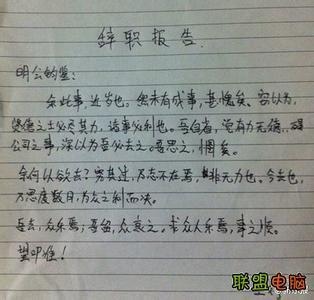 辞职报告
明公钧鉴：
余此事，近岁也。然未有成事，甚愧矣。窃以为，
贤德之士必尽其力，诸事必利也。吾自省，觉有力无德，碍
公司之事，深以为吾必去之。吾思之，惆矣。
余何以欲去？穷其过，乃志不在焉，非无力也。今去也，
乃思度数月，为众之利而决。
吾去，众乐焉，吾留，众哀之。求众人乐焉，事之顺。
望叩准！
联盟电脑